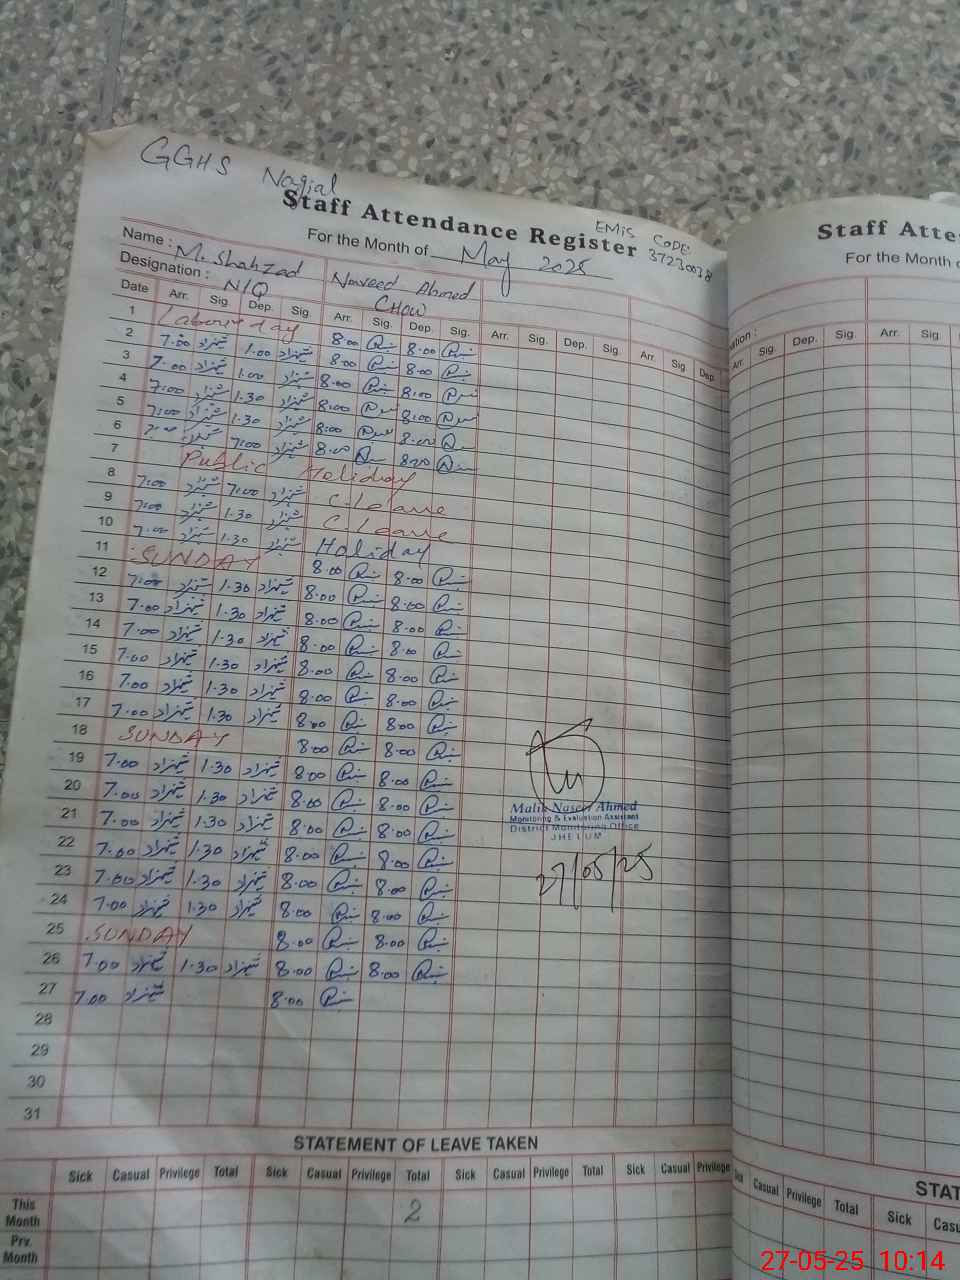 GGHS Nagial
Staff Attendance Register
EMIS CODE
37230038
For the Month of May 2025
Name : M. Shahzad Naveed Ahmed
Designation : N/Q CHOW
Date Arr. Sig. Dep. Sig. Arr. Sig. Dep. Sig. Arr. Sig. Dep. Sig. Arr. Sig. Dep.
1 Labour day 8.00 8.00
2 7.00 شہزاد 1.00 شہزاد 8.00 8.00
3 7.00 شہزاد 1.00 شہزاد 8.00 8.00
4 7.00 شہزاد 1.30 شہزاد 8.00 8.00
5 7.00 شہزاد 1.30 شہزاد 8.00 8.00
6 7.00 شہزاد 7.00 شہزاد 8.00 8.00
7 Public Holiday
8 7.00 شہزاد 7.00 شہزاد C. Leave
9 7.00 شہزاد 1.30 شہزاد C. Leave
10 7.00 شہزاد 1.30 شہزاد Holiday
11 SUNDAY 8.00 8.00
12 7.00 شہزاد 1.30 شہزاد 8.00 8.00
13 7.00 شہزاد 1.30 شہزاد 8.00 8.00
14 7.00 شہزاد 1.30 شہزاد 8.00 8.00
15 7.00 شہزاد 1.30 شہزاد 8.00 8.00
16 7.00 شہزاد 1.30 شہزاد 8.00 8.00
17 7.00 شہزاد 1.30 شہزاد 8.00 8.00
18 SUNDAY 8.00 8.00
19 7.00 شہزاد 1.30 شہزاد 8.00 8.00
20 7.00 شہزاد 1.30 شہزاد 8.00 8.00
21 7.00 شہزاد 1.30 شہزاد 8.00 8.00
22 7.00 شہزاد 1.30 شہزاد 8.00 8.00
23 7.00 شہزاد 1.30 شہزاد 8.00 8.00
24 7.00 شہزاد 1.30 شہزاد 8.00 8.00
25 SUNDAY 8.00 8.00
26 7.00 شہزاد 1.30 شہزاد 8.00 8.00
27 7.00 شہزاد 8.00
28
29
30
31
Malik Naseer Ahmed
Monitoring & Evaluation Assistant
District Monitoring Office
JHELUM
27/05/25
STATEMENT OF LEAVE TAKEN
Sick Casual Privilege Total Sick Casual Privilege Total Sick Casual Privilege Total Sick Casual Privilege
This Month 2
Prv. Month
Staff Atte
For the Month o
ation :
Arr. Sig. Dep. Sig. Arr. Sig.
STAT
Casual Privilege Total Sick Casu
27-05-25 10:14